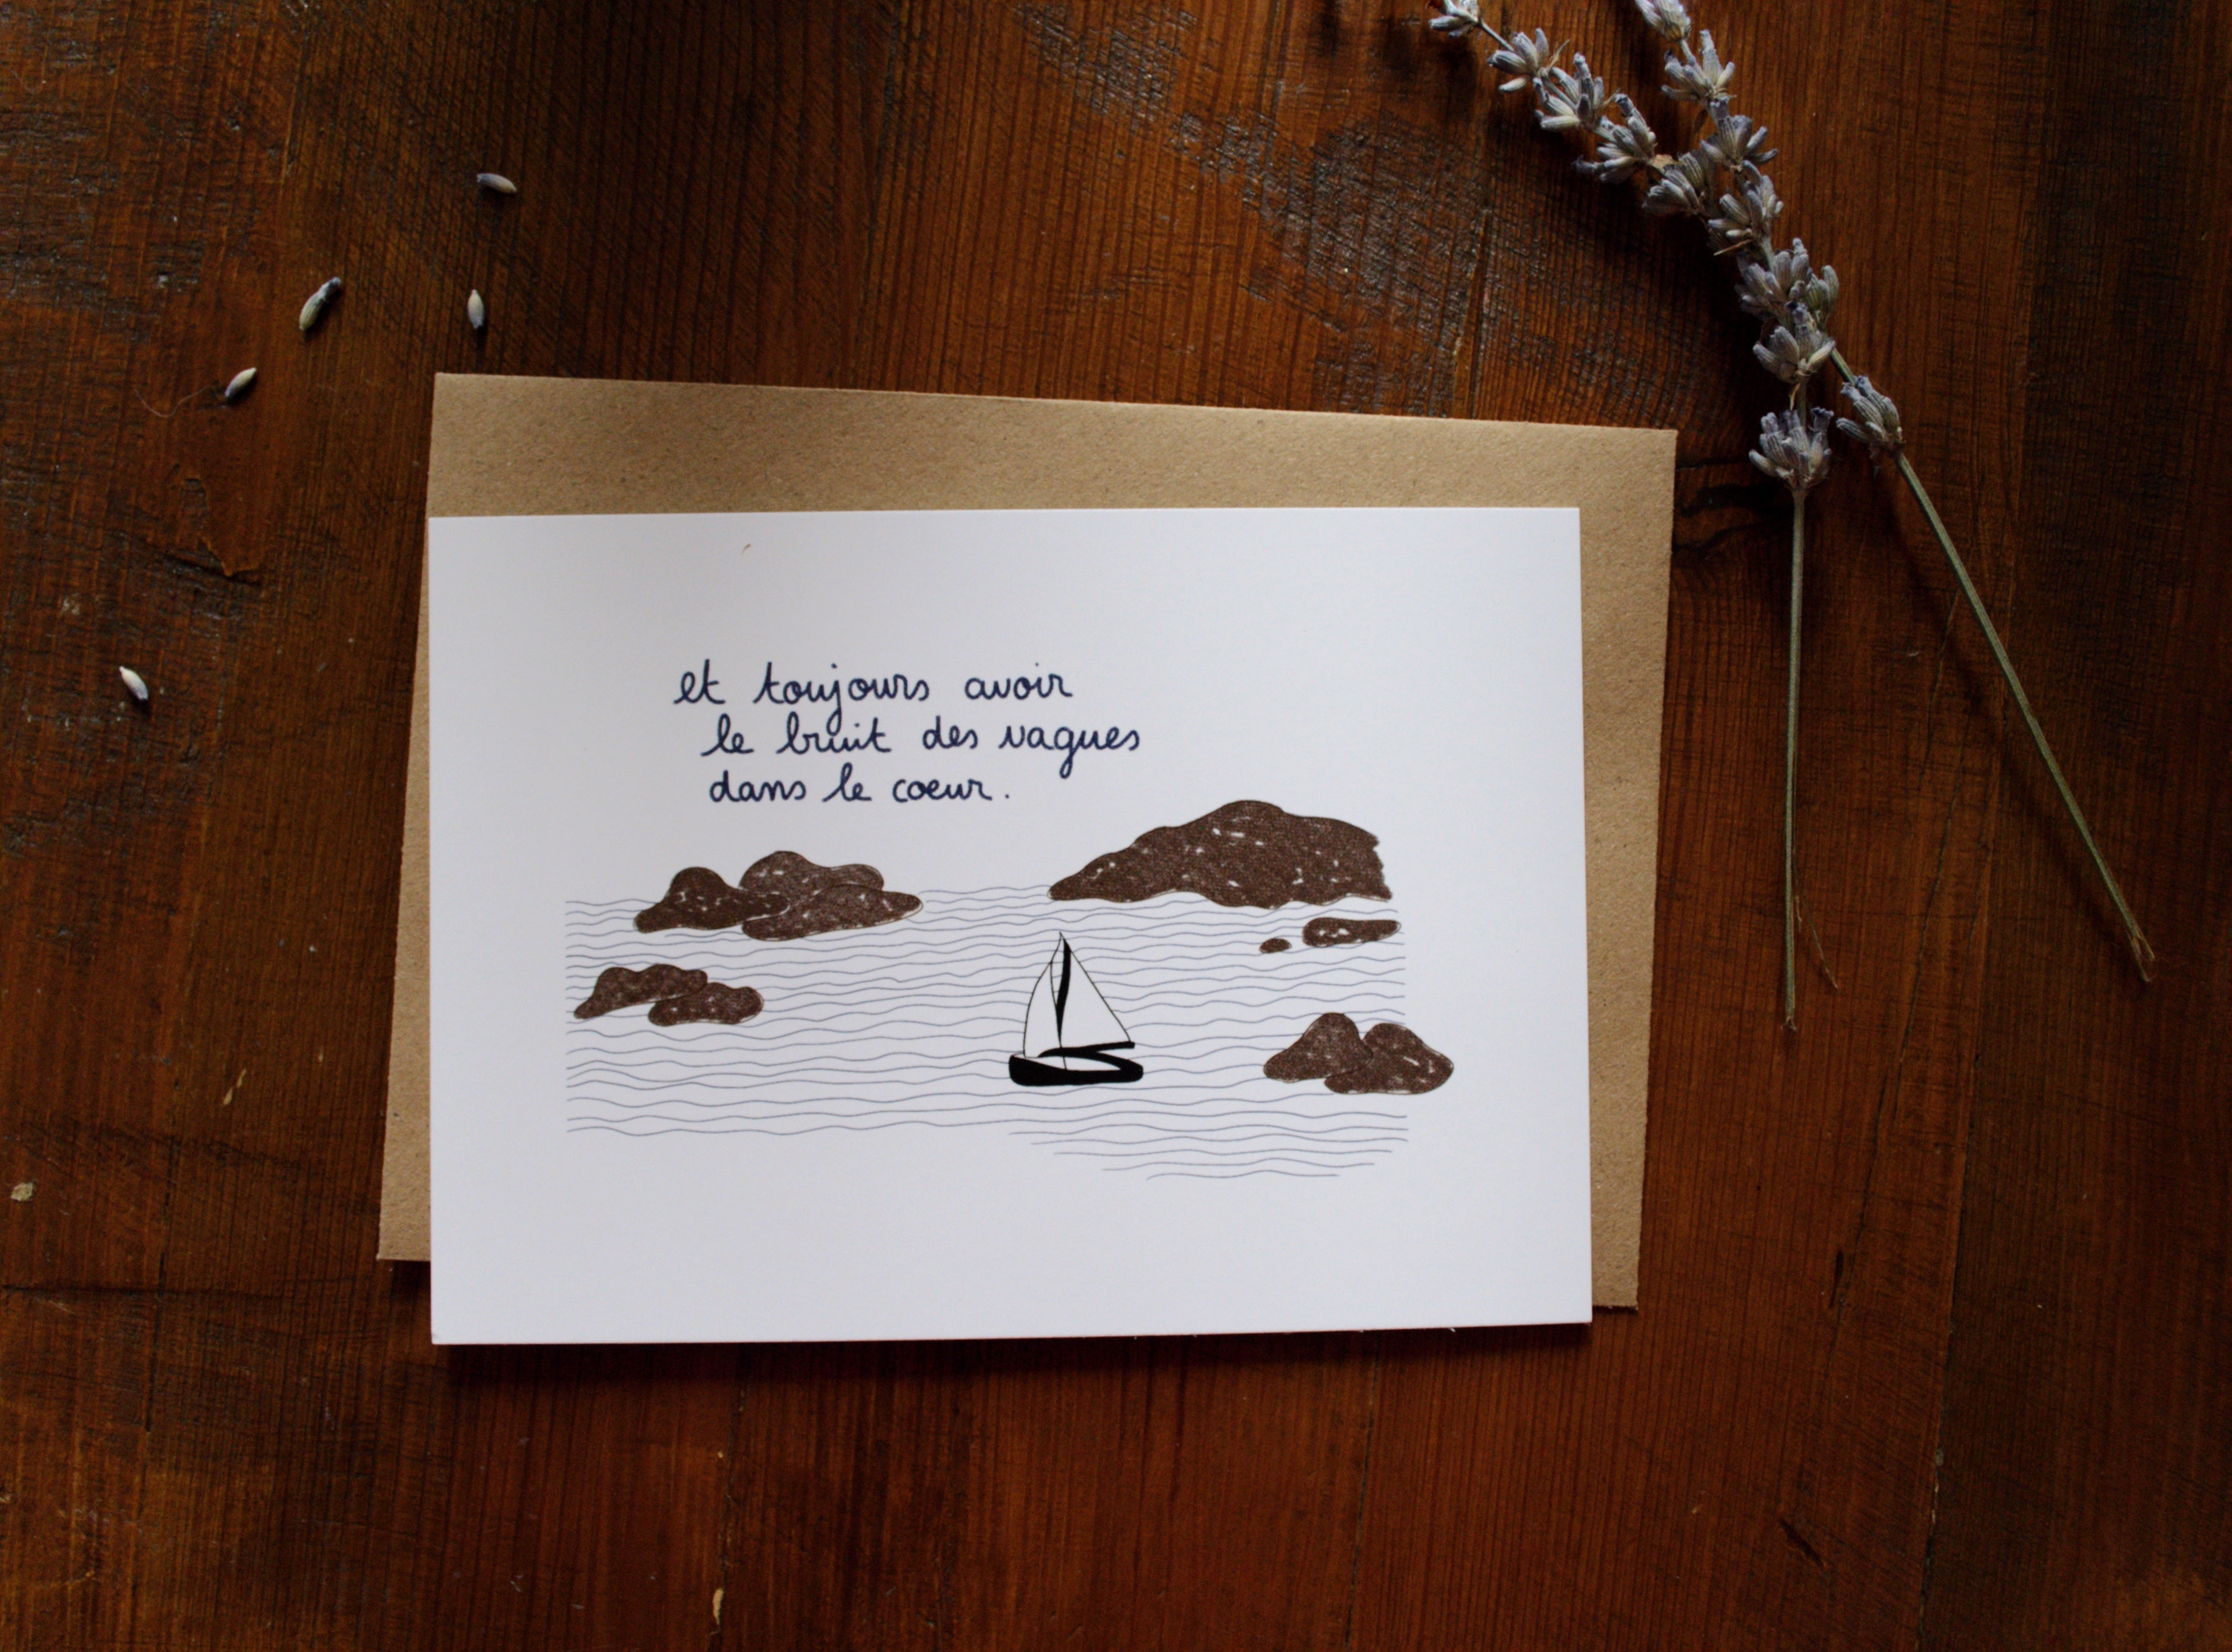 et toujours avoir
le bruit des vagues
dans le coeur.